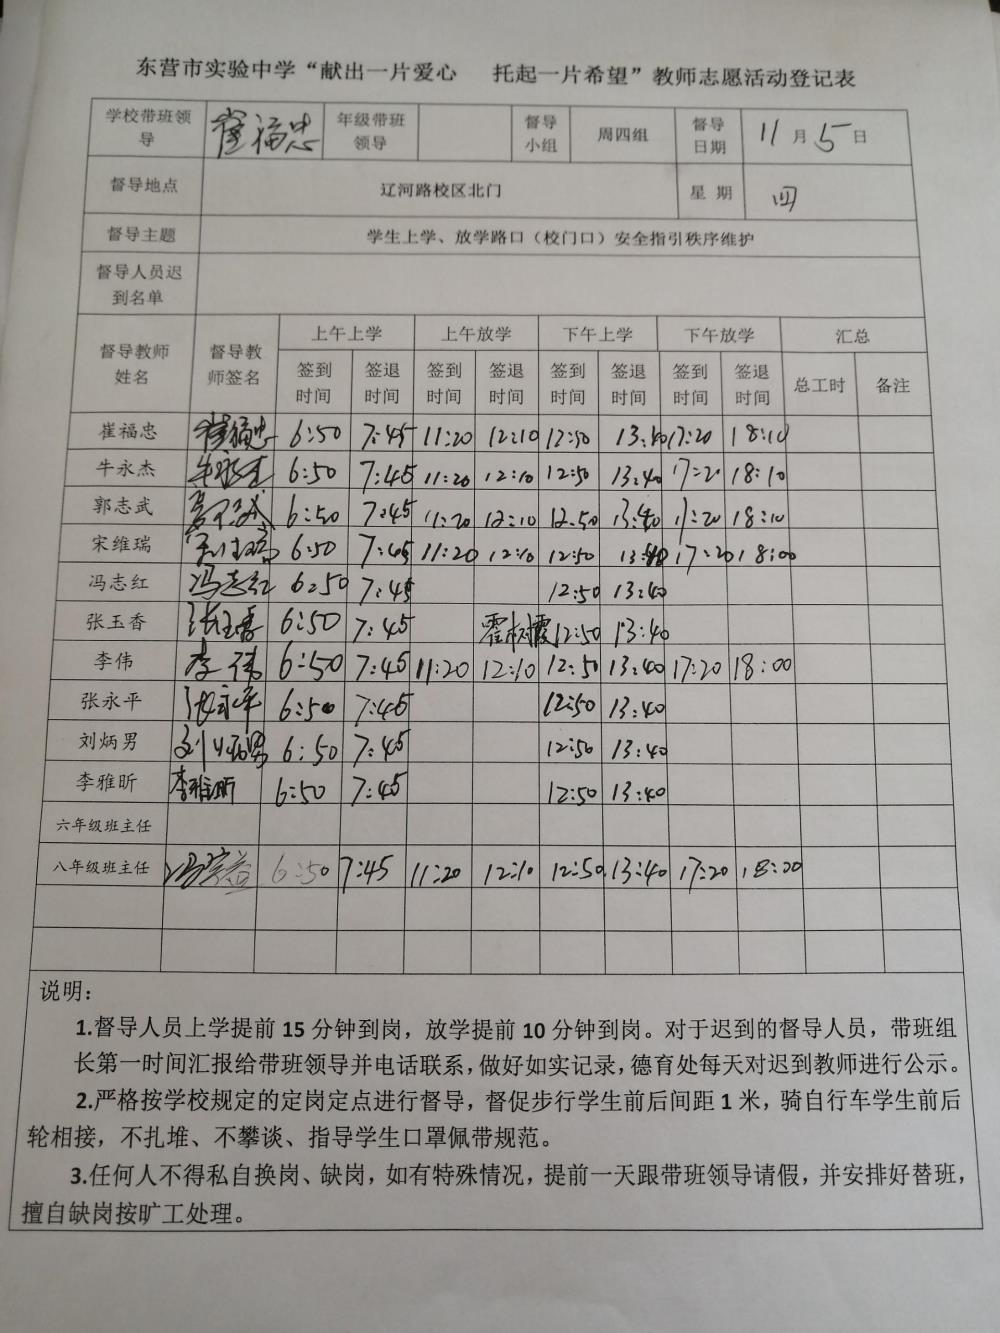 东营市实验中学“献出一片爱心 托起一片希望”教师志愿活动登记表
学校带班领导 崔福忠 年级带班领导 督导小组 周四组 督导日期 11月5日
督导地点 辽河路校区北门 星期 四
督导主题 学生上学、放学路口（校门口）安全指引秩序维护
督导人员迟到名单
督导教师姓名 督导教师签名 上午上学 上午放学 下午上学 下午放学 汇总
签到时间 签退时间 签到时间 签退时间 签到时间 签退时间 签到时间 签退时间 总工时 备注
崔福忠 崔福忠 6:50 7:45 11:20 12:10 12:50 13:40 17:20 18:10
牛永杰 牛永杰 6:50 7:45 11:20 12:10 12:50 13:40 17:20 18:10
郭志武 郭志武 6:50 7:45 11:20 12:10 12:50 13:40 17:20 18:10
宋维瑞 宋维瑞 6:50 7:45 11:20 12:10 12:50 13:40 17:20 18:00
冯志红 冯志红 6:50 7:45 12:50 13:40
张玉香 张玉香 6:50 7:45 霍树霞 12:50 13:40
李伟 李伟 6:50 7:45 11:20 12:10 12:50 13:40 17:20 18:00
张永平 张永平 6:50 7:45 12:50 13:40
刘炳男 刘炳男 6:50 7:45 12:50 13:40
李雅昕 李雅昕 6:50 7:45 12:50 13:40
六年级班主任
八年级班主任 6:50 7:45 11:20 12:10 12:50 13:40 17:20 18:20
说明：
1.督导人员上学提前 15 分钟到岗，放学提前 10 分钟到岗。对于迟到的督导人员，带班组
长第一时间汇报给带班领导并电话联系，做好如实记录，德育处每天对迟到教师进行公示。
2.严格按学校规定的定岗定点进行督导，督促步行学生前后间距 1 米，骑自行车学生前后
轮相接，不扎堆、不攀谈、指导学生口罩佩带规范。
3.任何人不得私自换岗、缺岗，如有特殊情况，提前一天跟带班领导请假，并安排好替班，
擅自缺岗按旷工处理。